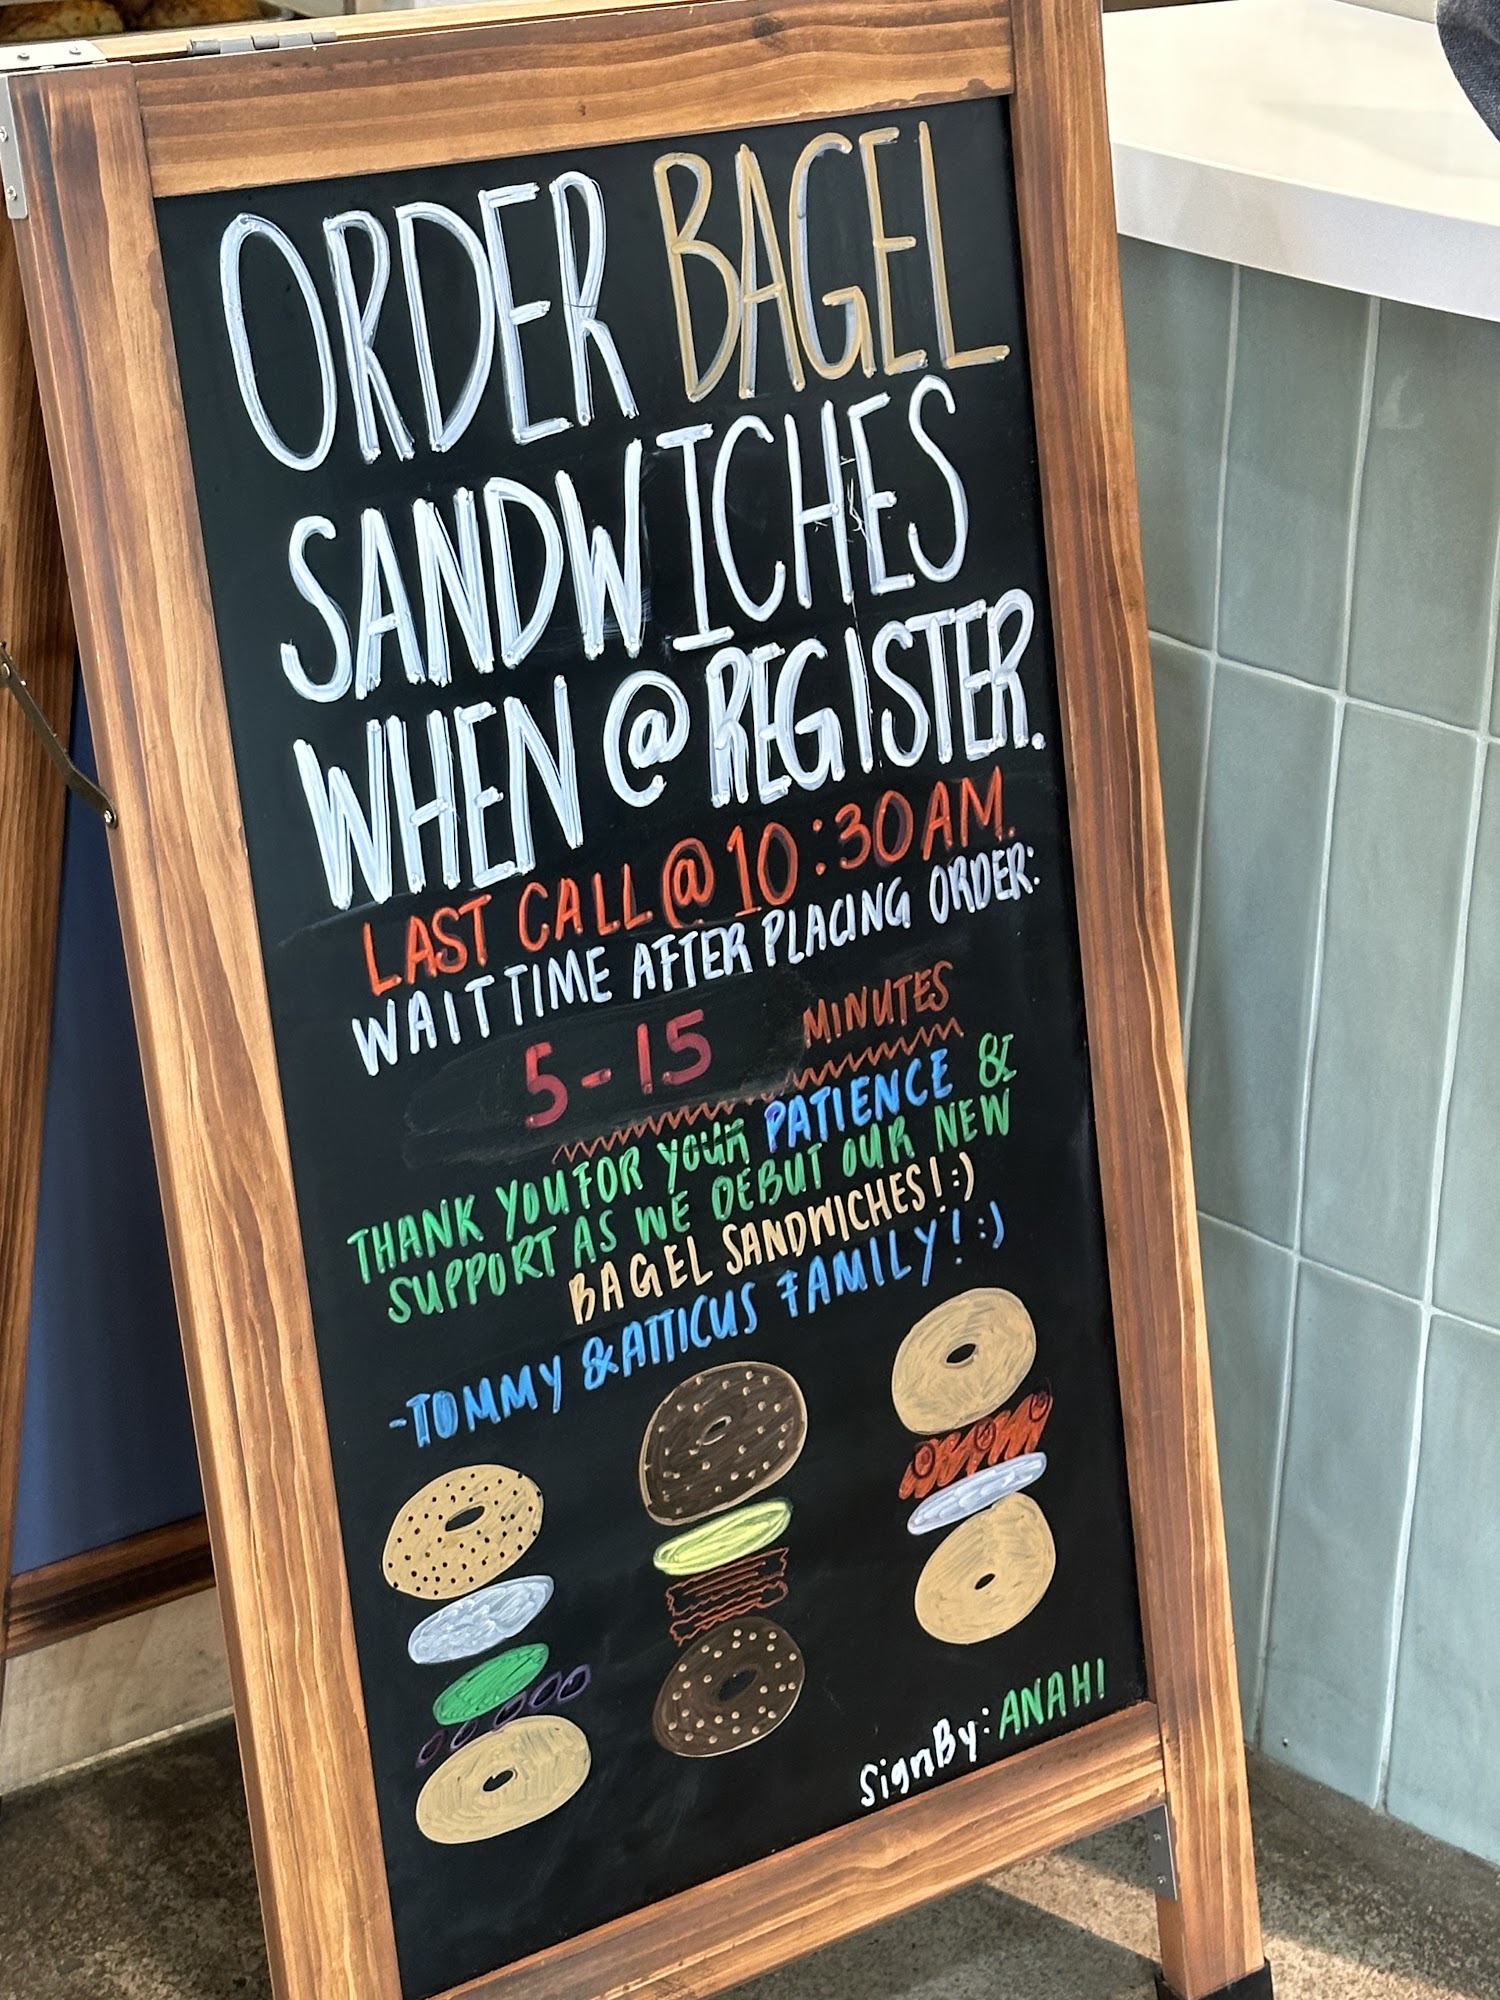 ORDER BAGEL
SANDWICHES
WHEN @ REGISTER.
LAST CALL @ 10:30AM.
WAIT TIME AFTER PLACING ORDER:
5-15 MINUTES
THANK YOU FOR YOUR PATIENCE &
SUPPORT AS WE DEBUT OUR NEW
BAGEL SANDWICHES! :)
-TOMMY & ATTICUS FAMILY! :)
Sign By: ANAHI